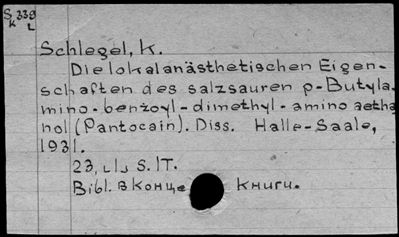 S 339
k L
Schlegel, K.
Die lokalanästhetischen Eigen-
schaften des salzsauren p-Butyla.
mino-benzoyl-dimethyl-amino aetha
nol (Pantocain). Diss. Halle-Saale,
1931.
23, ⌊1⌋ S. 1T.
Bibl. в конце книги.